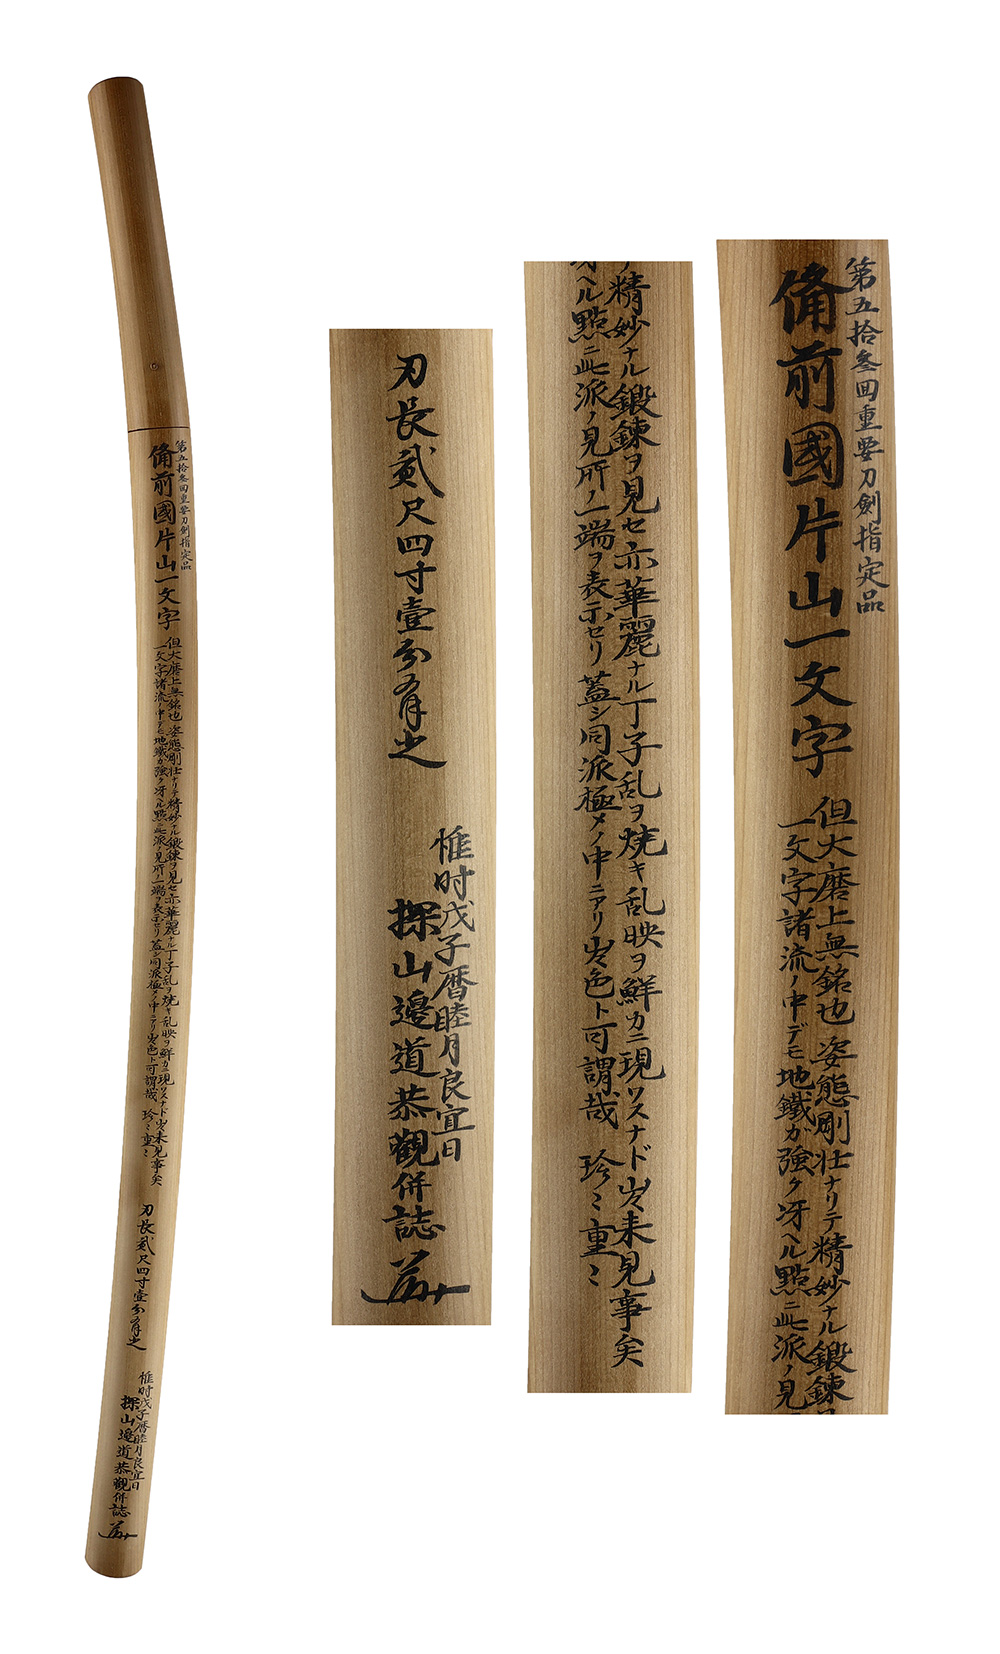 第五拾叄回重要刀劍指定品
備前國片山一文字
但大磨上無銘也 姿態剛壮ナリテ精妙ナル鍛錬ヲ見セ亦華麗ナル丁子乱ヲ焼キ乱映ヲ鮮カニ現ワスナド出来見事矣
一文字諸流ノ中デモ地鐵ガ強ク冴ヘル點ニ此派ノ見所ノ一端ヲ表示セリ 蓋シ同派極メノ中ニアリ出色ト可謂哉 珍〻重〻
刃長貳尺四寸壹分有之
惟時戊子暦睦月良宜日
探山邊道恭觀併誌
第五拾叄回重要刀劍指定品
備前國片山一文字
但大磨上無銘也 姿態剛壮ナリテ精妙ナル鍛錬
一文字諸流ノ中デモ地鐵ガ強ク冴ヘル點ニ此派ノ見
精妙ナル鍛錬ヲ見セ亦華麗ナル丁子乱ヲ焼キ乱映ヲ鮮カニ現ワスナド出来見事矣
冴ヘル點ニ此派ノ見所ノ一端ヲ表示セリ 蓋シ同派極メノ中ニアリ出色ト可謂哉 珍〻重〻
刃長貳尺四寸壹分有之
惟時戊子暦睦月良宜日
探山邊道恭觀併誌